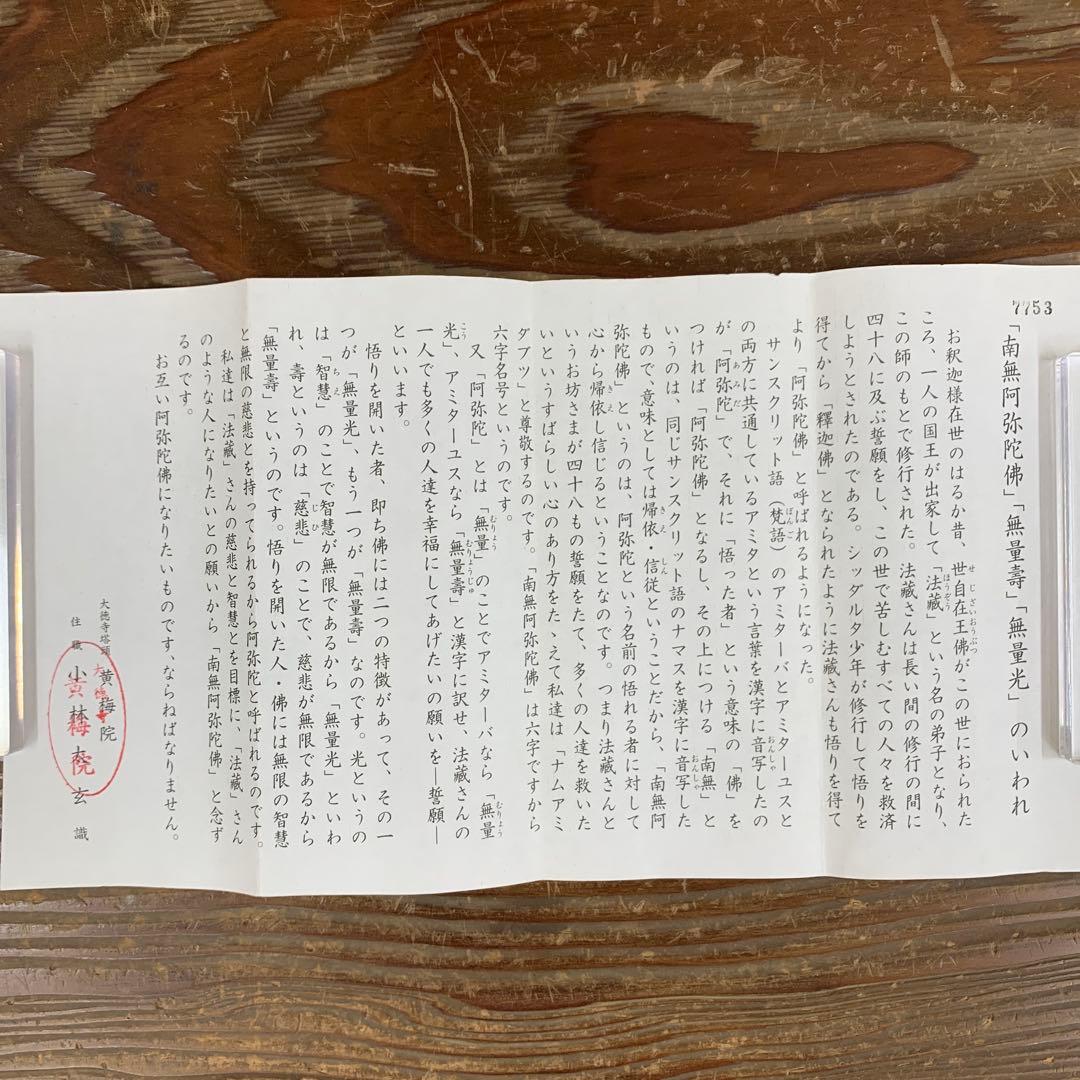 7753
「南無阿弥陀佛」「無量壽」「無量光」のいわれ
お釈迦様在世のはるか昔、世自在王佛がこの世におられた
ころ、一人の国王が出家して「法藏」という名の弟子となり、
この師のもとで修行された。法藏さんは長い間の修行の間に
四十八に及ぶ誓願をし、この世で苦しむすべての人々を救済
しようとされたのである。シッダルタ少年が修行して悟りを
得てから「釋迦佛」となられたように法藏さんも悟りを得て
より「阿弥陀佛」と呼ばれるようになった。
サンスクリット語(梵語)のアミターバとアミターユスと
の両方に共通しているアミタという言葉を漢字に音写したの
が「阿弥陀」で、それに「悟った者」という意味の「佛」を
つければ「阿弥陀佛」となるし、その上につける「南無」と
いうのは、同じサンスクリット語のナマスを漢字に音写した
もので、意味としては帰依・信従ということだから、「南無阿
弥陀佛」というのは、阿弥陀という名前の悟れる者に対して
心から帰依し信じるということなのです。つまり法藏さんと
いうお坊さまが四十八もの誓願をたて、多くの人達を救いた
いというすばらしい心のあり方をたゝえて私達は「ナムアミ
ダブツ」と尊敬するのです。「南無阿弥陀佛」は六字ですから
六字名号というのです。
又「阿弥陀」とは「無量」のことでアミターバなら「無量
光」、アミターユスなら「無量壽」と漢字に訳せ、法藏さんの
一人でも多くの人達を幸福にしてあげたいの願いを―誓願―
といいます。
悟りを開いた者、即ち佛には二つの特徴があって、その一
つが「無量光」、もう一つが「無量壽」なのです。光というの
は「智慧」のことで智慧が無限であるから「無量光」といわ
れ、壽というのは「慈悲」のことで、慈悲が無限であるから
「無量壽」というのです。悟りを開いた人・佛には無限の智慧
と無限の慈悲とを持ってられるから阿弥陀と呼ばれるのです。
私達は「法藏」さんの慈悲と智慧とを目標に、「法藏」さん
のような人になりたいとの願いから「南無阿弥陀佛」と念ず
るのです。
お互い阿弥陀佛になりたいものです、ならねばなりません。
大徳寺塔頭 黄梅院
住職 小林 玄 識
大徳寺
黄梅院